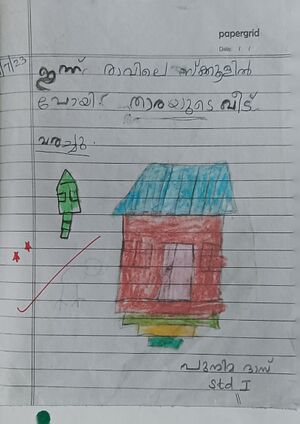 papergrid
Date: / /
/7/23
ഇന്ന് രാവിലെ സ്ക്കൂളിൽ
പോയി. താരയുടെ വീട്
വരച്ചു.
ദാസ്
Std I